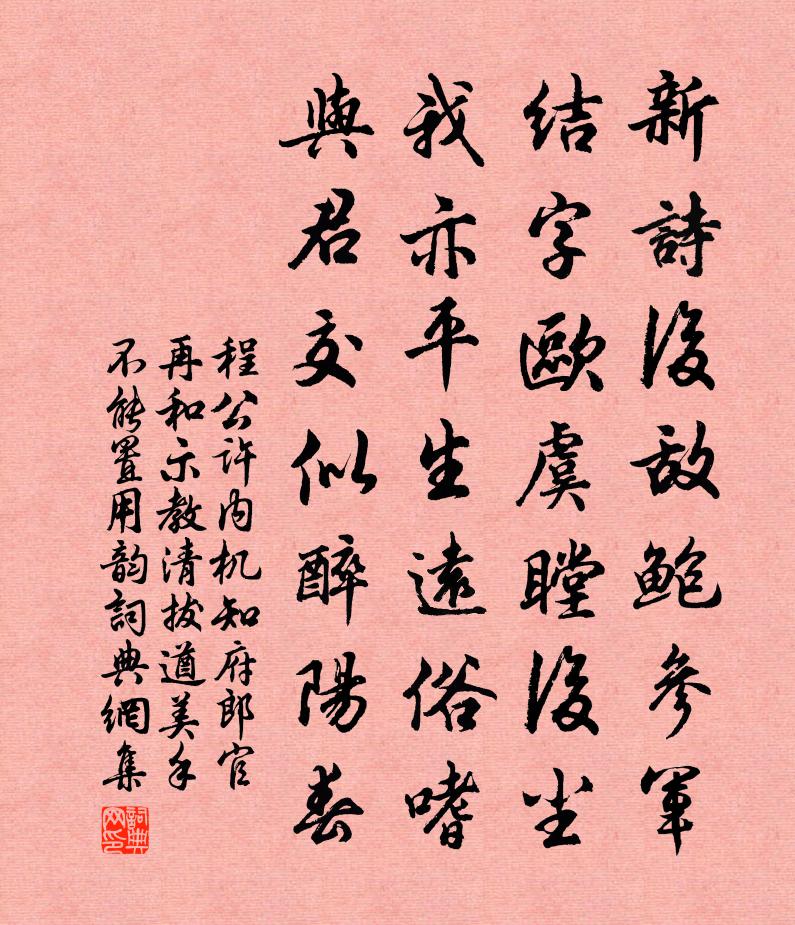 新詩後敵鮑參軍
結字歐虞瞠後塵
我亦平生遠俗嗜
與君交似醉陽春
程公许内机知府郎官
再和示教清拔遒美手
不能置用韵詞典網集
詞典网印